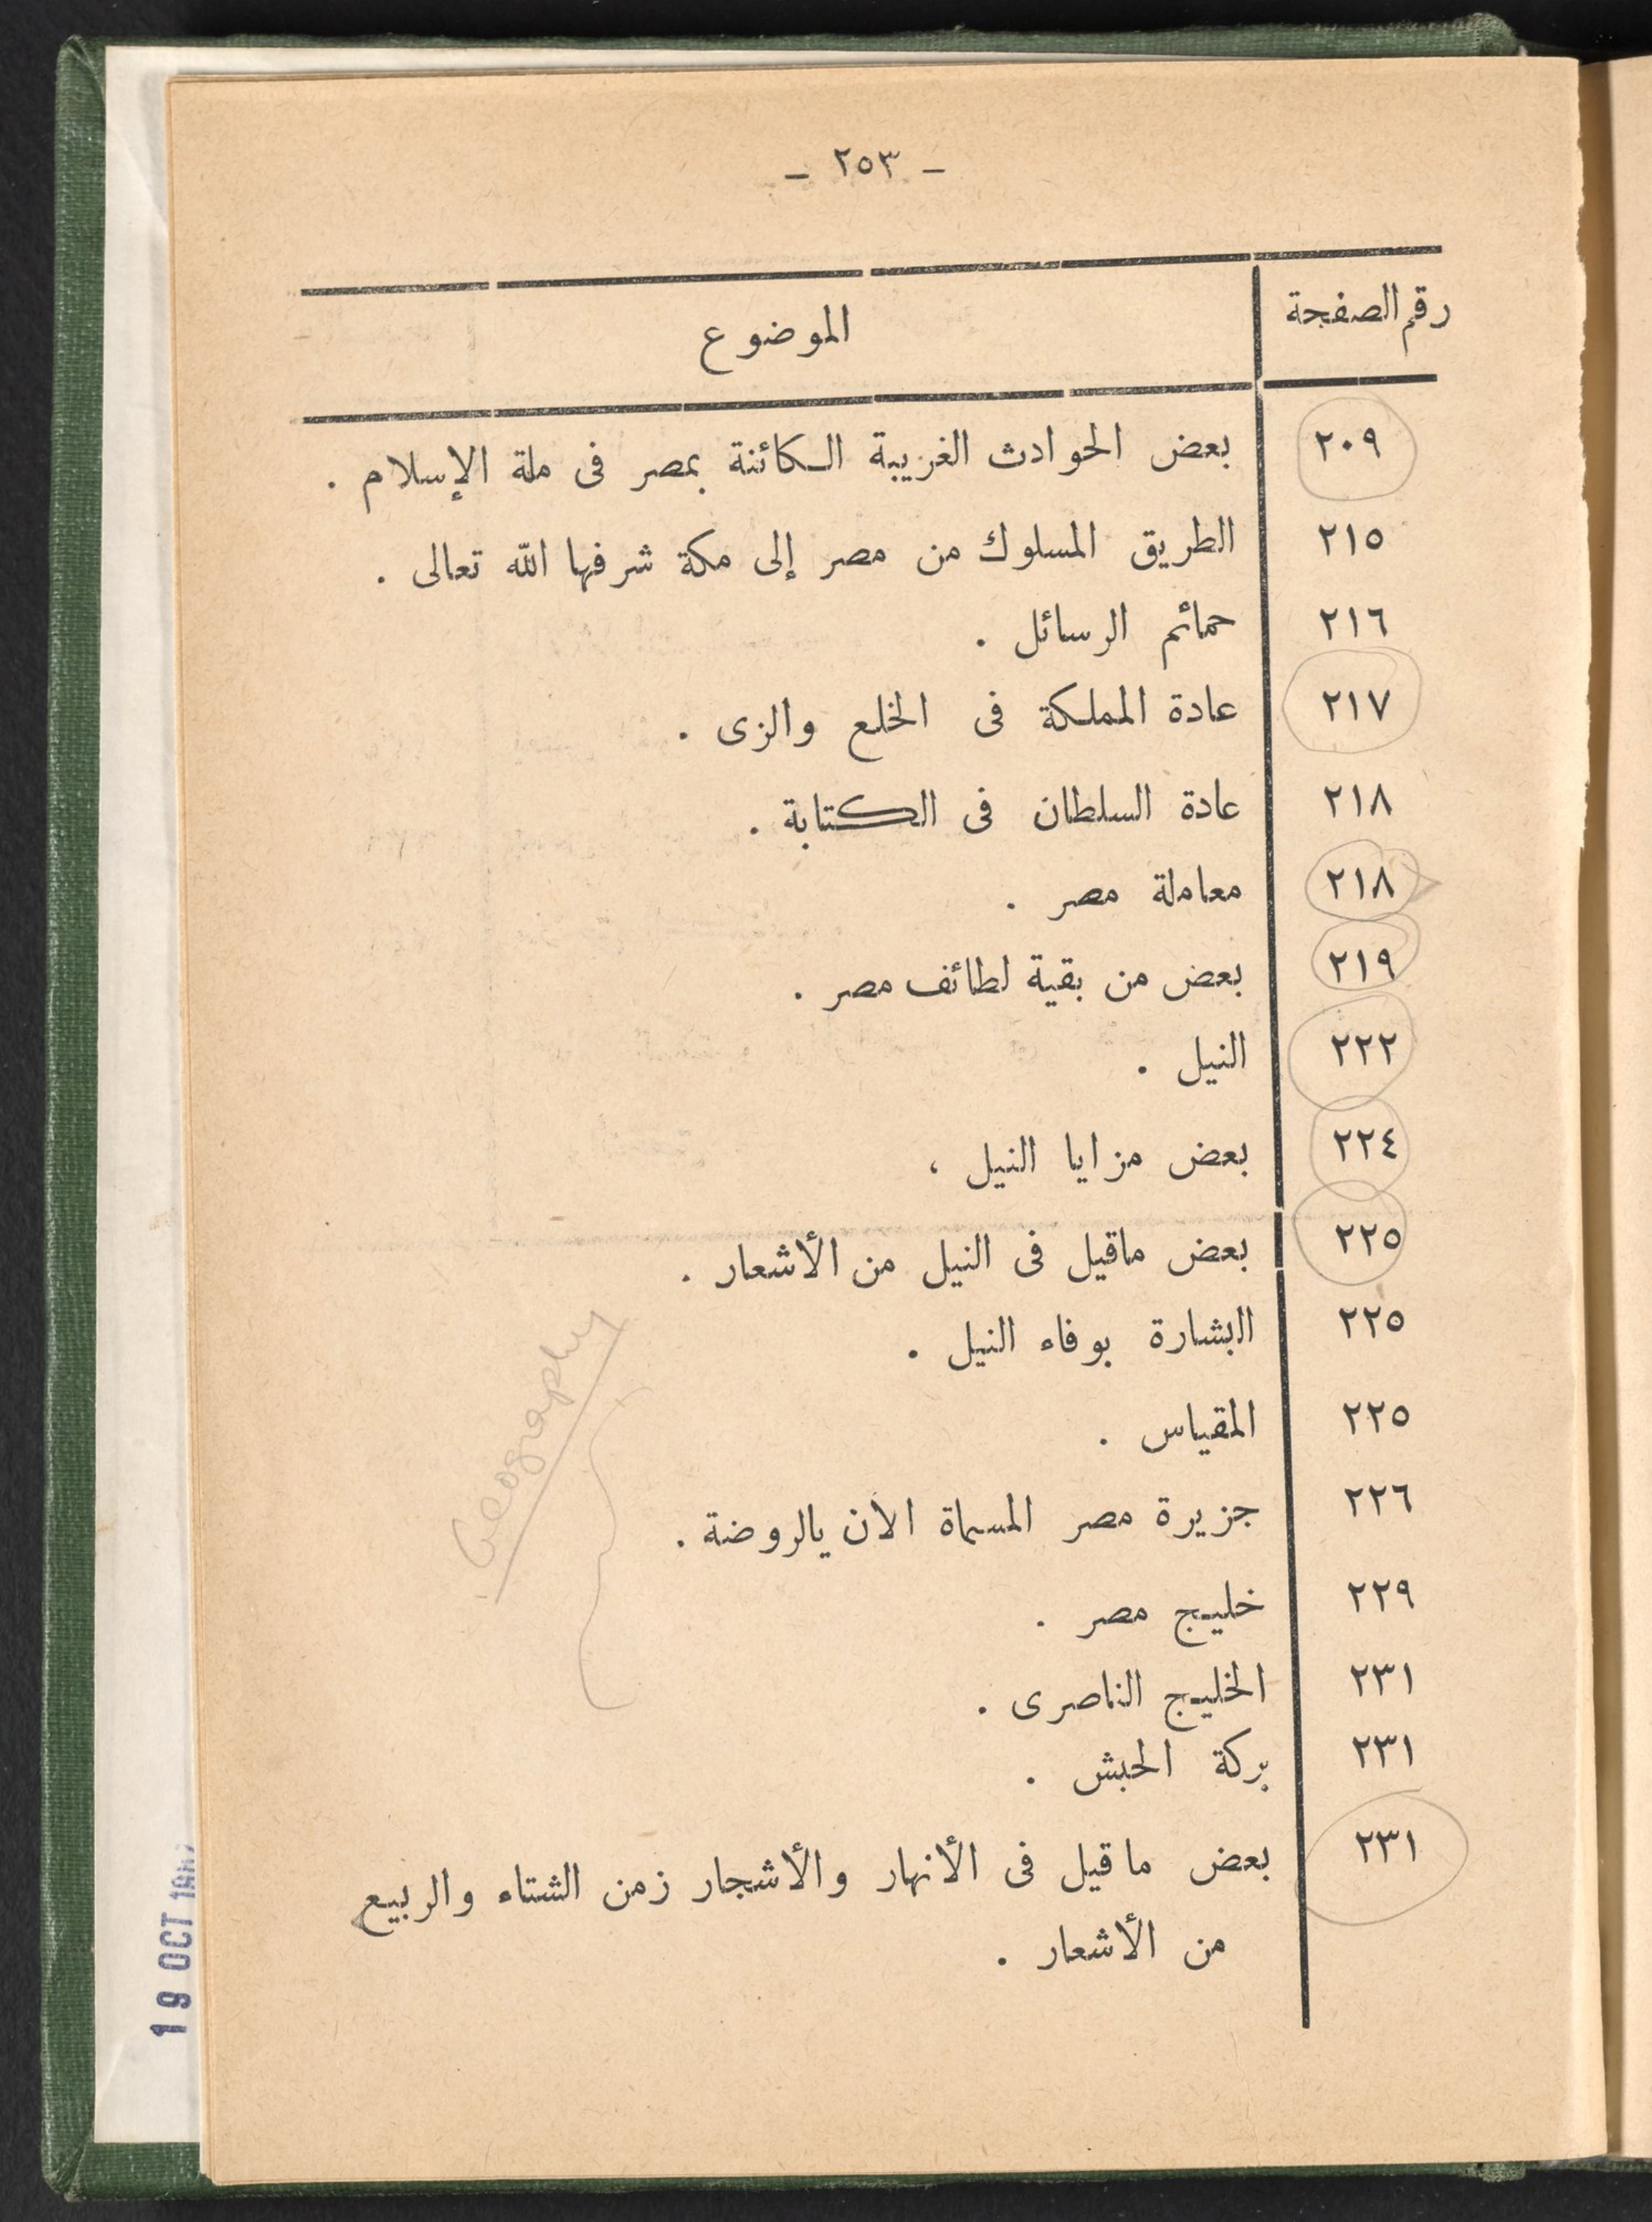 — ٢٥٣ —
رقم الصفحة الموضوع
٢٠٩ بعض الحوادث الغريبة الكائنة بمصر فى ملة الإسلام .
٢١٥ الطريق المسلوك من مصر إلى مكة شرفها الله تعالى .
٢١٦ حمائم الرسائل .
٢١٧ عادة المملكة فى الخلع والزى .
٢١٨ عادة السلطان فى الكتابة .
٢١٨ معاملة مصر .
٢١٩ بعض من بقية لطائف مصر .
٢٢٢ النيل .
٢٢٤ بعض مزايا النيل ،
٢٢٥ بعض ماقيل فى النيل من الأشعار .
٢٢٥ البشارة بوفاء النيل .
٢٢٥ المقياس .
٢٢٦ جزيرة مصر المسماة الآن بالروضة .
٢٢٩ خليج مصر .
٢٣١ الخليج الناصرى .
٢٣١ بركة الحبش .
٢٣١ بعض ماقيل فى الأنهار والأشجار زمن الشتاء والربيع
من الأشعار .
Geography
19 OCT